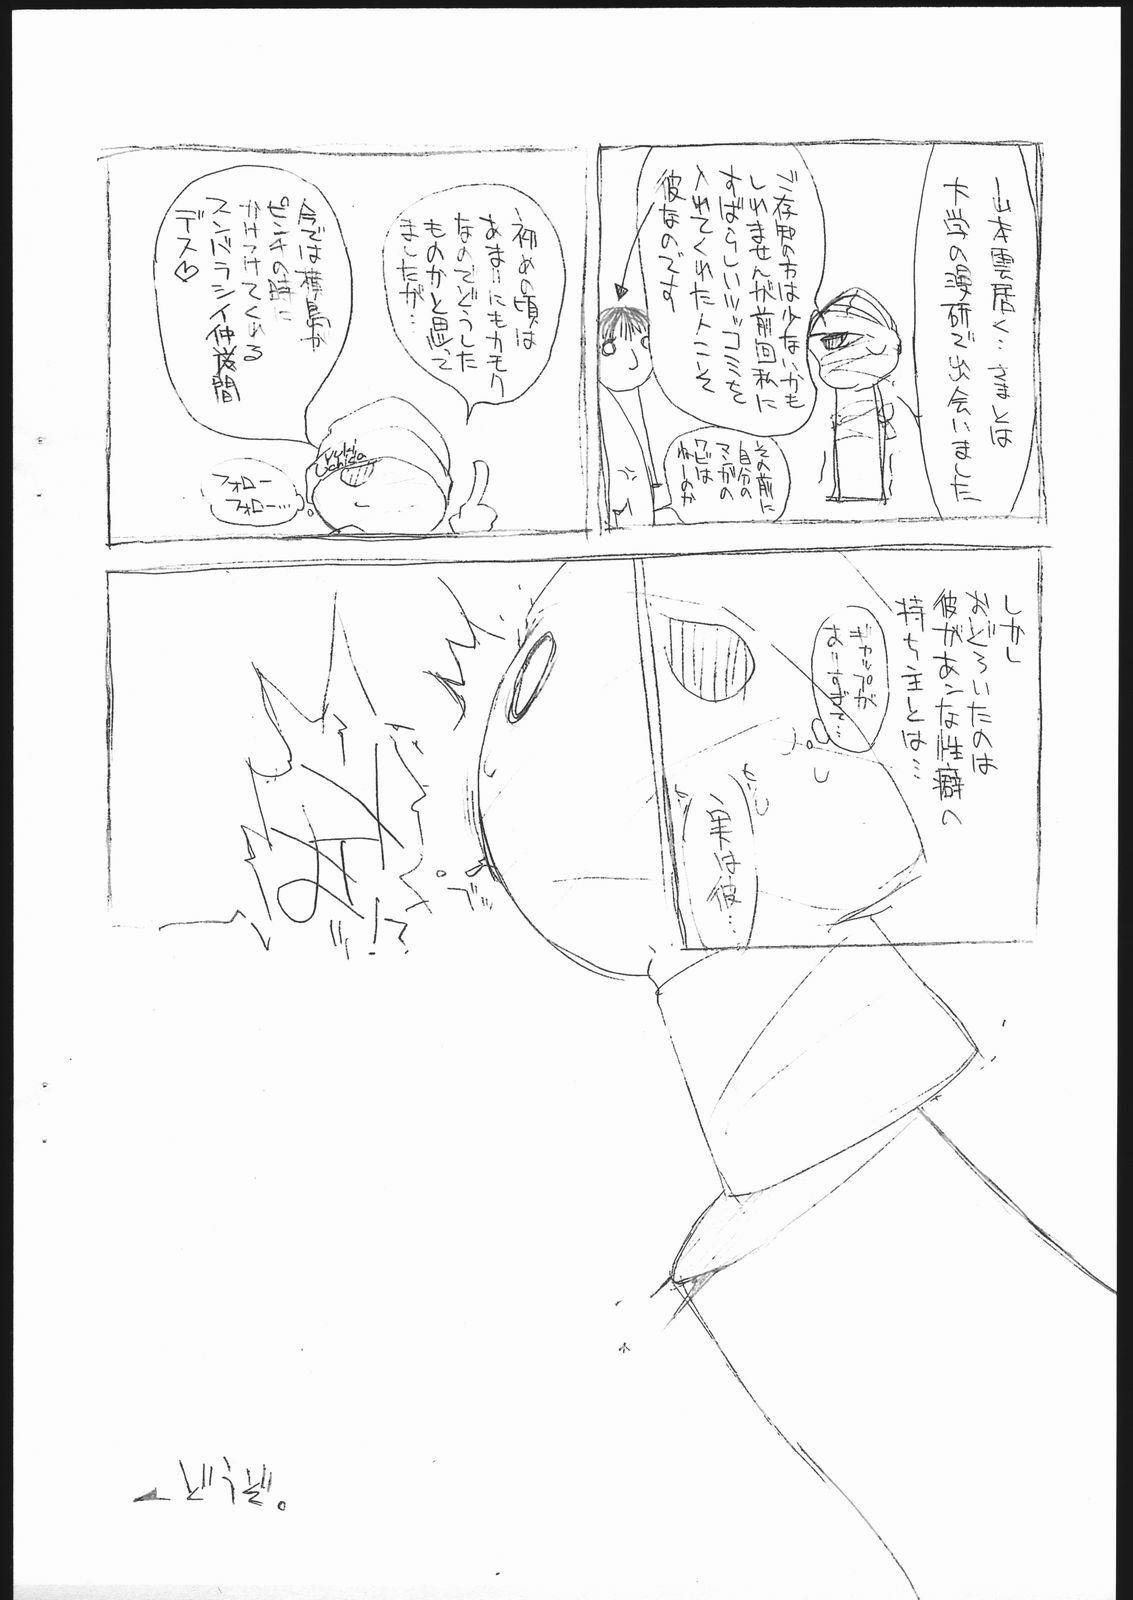 山本雲居く…さまとは
大学の漫研で出会いました
ご存知の方は少ないかも
しれませんが前回私に
すばらしいツッコミを
入れてくれた人こそ
彼なのです
その前に
自分の
マンガの
ワビは
ねーのか
初めの頃は
あまりにもカモク
なのでどうした
ものかと思って
ましたが…
今では樺島が
ピンチの時に
かけつけてくれる
スンバラシイ仲間
デス♡
yuki
uchida
フォロー
フォロー…
しかし
おどろいたのは
彼があンな性癖の
持ち主とは…
ギャップが
ありすぎて…
実は彼…
どうぞ。